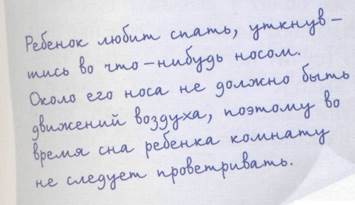 Ребенок любит спать, уткнув-
тись во что-нибудь носом.
Около его носа не должно быть
движений воздуха, поэтому во
время сна ребенка комнату
не следует проветривать.